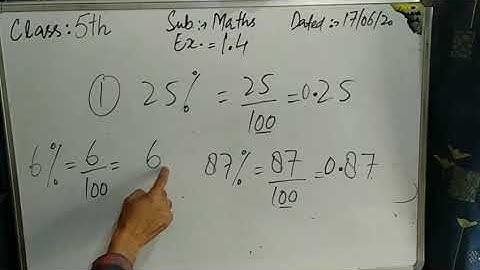 Class: 5th Sub:- Maths Dated:- 17/06/20
Ex. = 1.4
① 25% = 25/100 = 0.25
6% = 6/100 = 6 87% = 87/100 = 0.87